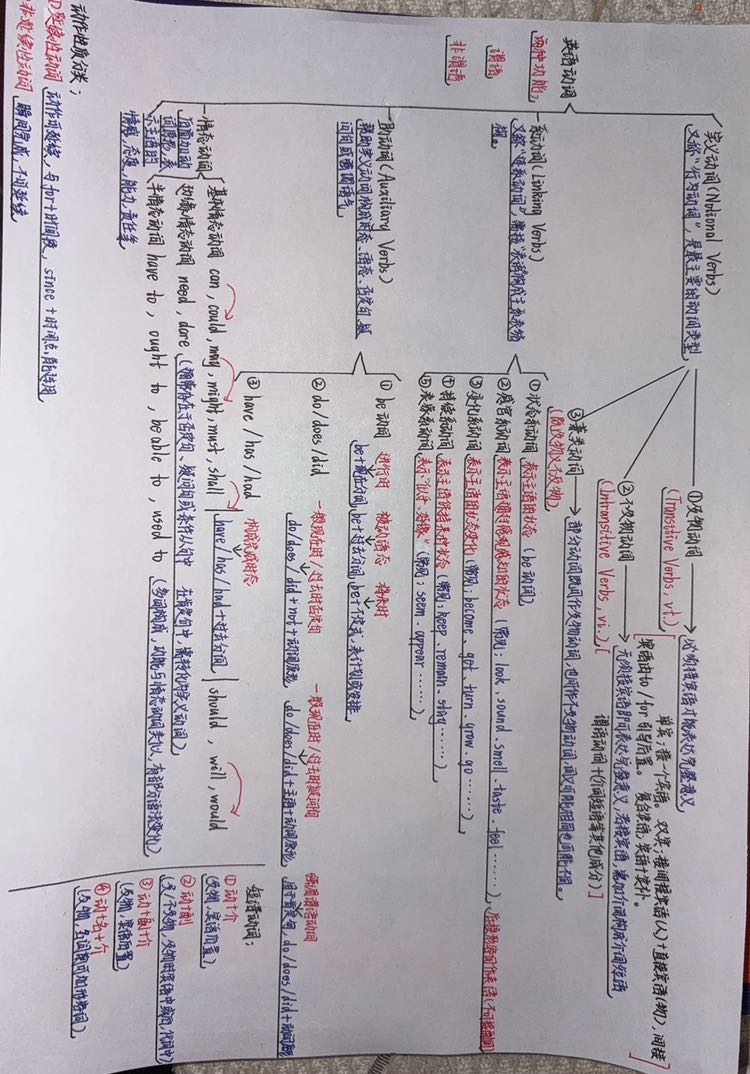 英语动词
两种功能
谓语
非谓语
实义动词(Notional Verbs)
又称“行为动词”,是最主要的动词类型
①及物动词
(Transitive Verbs, vt.)
必须接宾语才能表达完整意义
单宾:接一个宾语。双宾:接间接宾语(人)+直接宾语(物),间接
宾语由to/for引导后置。复合宾语:宾语+宾补。
②不及物动词
(Intransitive Verbs, vi.)
无须接宾语即可表达完整意义,若接宾语,需加介词构成介词短语
谓语动词+(介词短语等其他成分)
③兼类动词
(既及物又不及物)
部分动词既可作及物动词,也可作不及物动词,词义可能相同也可能不同。
系动词(Linking Verbs)
又称“连系动词”,需接表语构成主系表结
构。
①状态系动词 表示主语的状态(be动词)
②感官系动词 表示主语通过感知的状态(常见:look、sound、smell、taste、feel……)
后接形容词作表语(不可接副词)
③变化系动词 表示主语的状态变化(常见:become、get、turn、grow、go……)
④持续系动词 表示主语保持某种状态(常见:keep、remain、stay……)
⑤表象系动词 表示“似乎、好像”(常见:seem、appear……)
助动词(Auxiliary Verbs)
帮助实义动词构成时态、语态、否定句、疑
问句或强调语气
①be动词
进行时 被动语态 将来时
be+现在分词,be+过去分词,be+不定式,表计划或安排
②do/does/did
一般现在时/过去时否定句 一般现在时/过去时疑问句 强调谓语动词
do/does/did+not+动词原形 do/does/did+主语+动词原形 用于肯定句,do/does/did+动词原形
③have/has/had
构成完成时态
have/has/had+过去分词
情态动词
后面加动
词原形,表
示主语的
情感,态度,能力,责任等
基本情态动词 can, could, may, might, must, shall
should, will, would
切换情态动词 need, dare(通常存在于否定句、疑问句或条件从句中 在肯定句中,需转化为实义动词)
半情态动词 have to, ought to, be able to, used to(多词构成,功能与情态动词类似,有部分语法变化)
短语动词:
①动+介
(及物,宾语后置)
②动+副
(及/不及物,及物时宾语中或后,代词中)
③动+副+介
(及物,宾语后置)
④动+名+介
(及物,名词前可加形容词)
动作性质分类:
①延续性动词 动作可延续,与for+时间段,since+时间点,能连用
非延续性动词 瞬间完成,不可延续